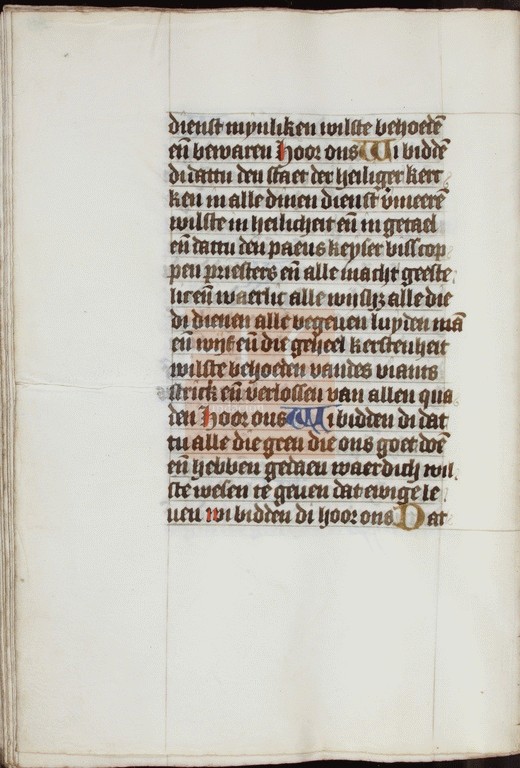 dienst mynliken wilste behoedē
eñ bewaren hoor ons Wi biddē
di dattu den staet der heiliger kerc
ken in alle dinen dienst v̄meerē
wilste in heilicheit eñ in getael
eñ dattu den paeus keyser bisscop
pen priesters eñ alle macht geeste
lic eñ waerlic alle wislijz alle die
di dienen alle begeuen luyden mā
eñ wijf eñ die geheel kerstenheit
wilste behoeden vandes viants
strick eñ verlossen van allen qua
den hoor ons Wi bidden di dat
tu alle die geen die ons goet doē
eñ hebben gedaen waerdich wil
ste wesen te geuen dat ewige le
uen wi bidden di hoor ons Dat